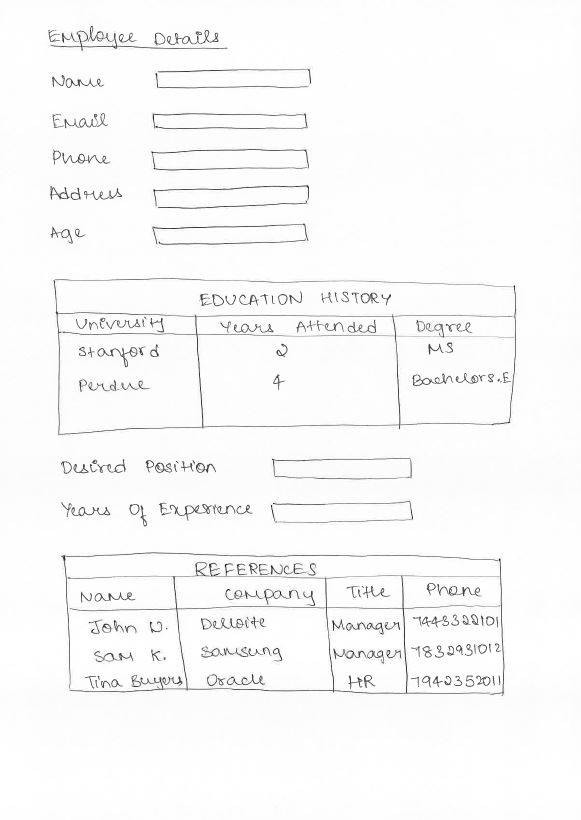 Employee Details
Name
Email
Phone
Address
Age
EDUCATION HISTORY
University Years Attended Degree
Stanford 2 MS
Perdue 4 Bachelors.E
Desired Position
Years Of Experience
REFERENCES
Name Company Title Phone
John W. Delloite Manager 7445322101
Sam K. Samsung Manager 7832931012
Tina Buyers Oracle HR 7942352011